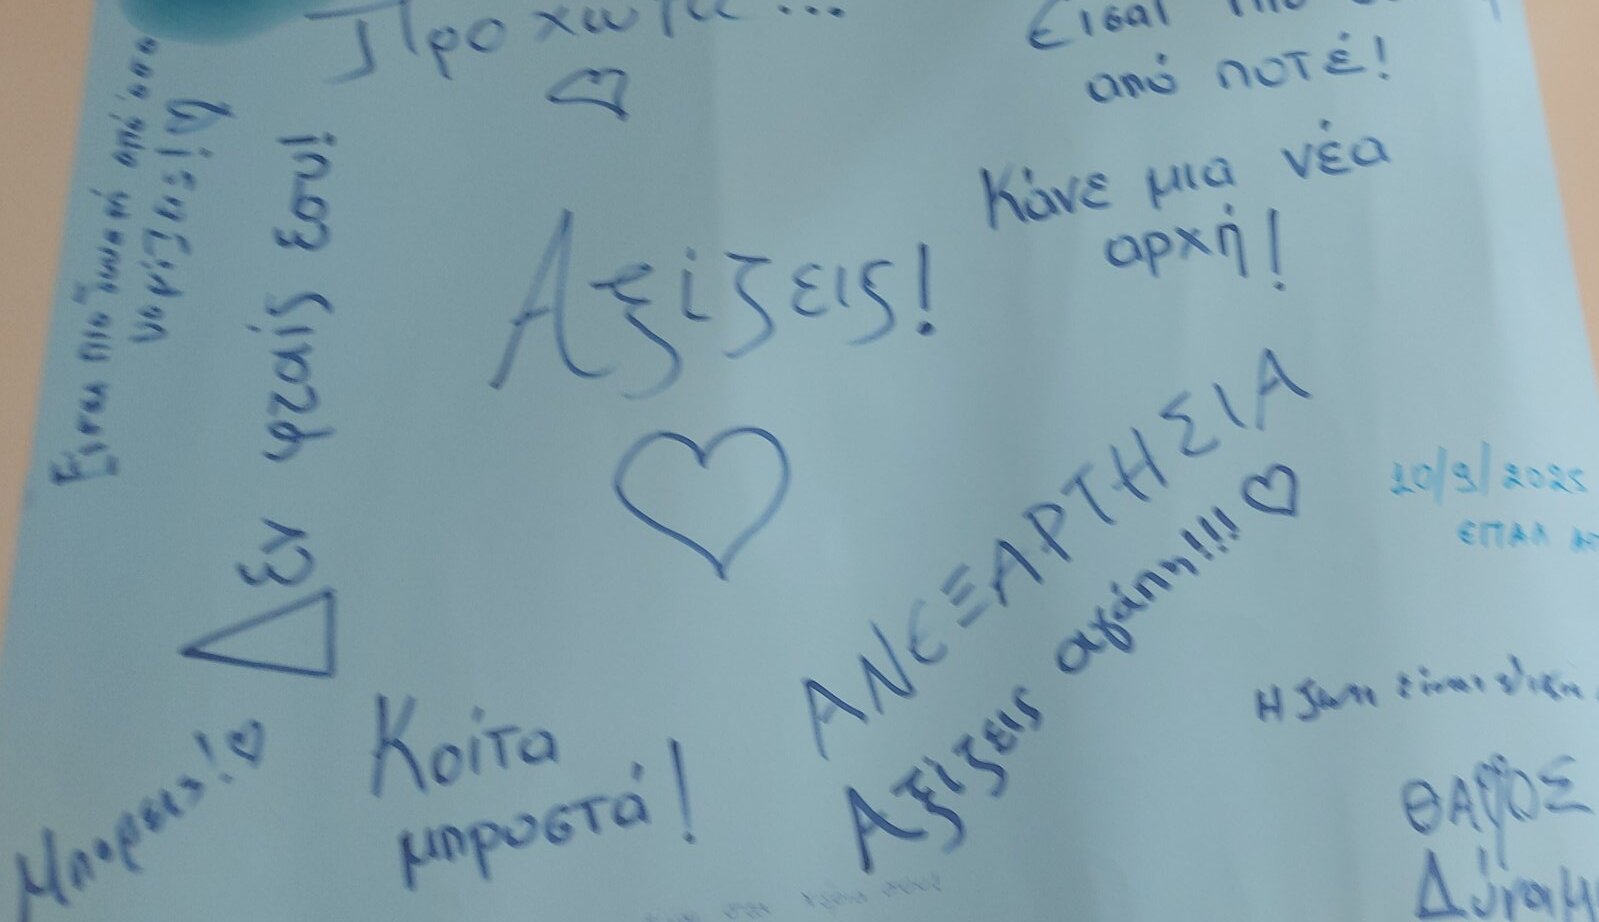 Προχώρα...
Είσαι πιο
από ποτέ!
Είσαι πιο δυνατή από όσο
νομίζεις!♡
Δεν φταίς εσύ!
Αξίζεις!
Κάνε μια νέα
αρχή!
ΑΝΕΞΑΡΤΗΣΙΑ
Αξίζεις αγάπη!!! ♡
10/9/2025
ΕΠΑΛ
Η ζωή είναι δική
ΘΑΡΡΟΣ
Μπορείς!♡
Κοίτα
μπροστά!